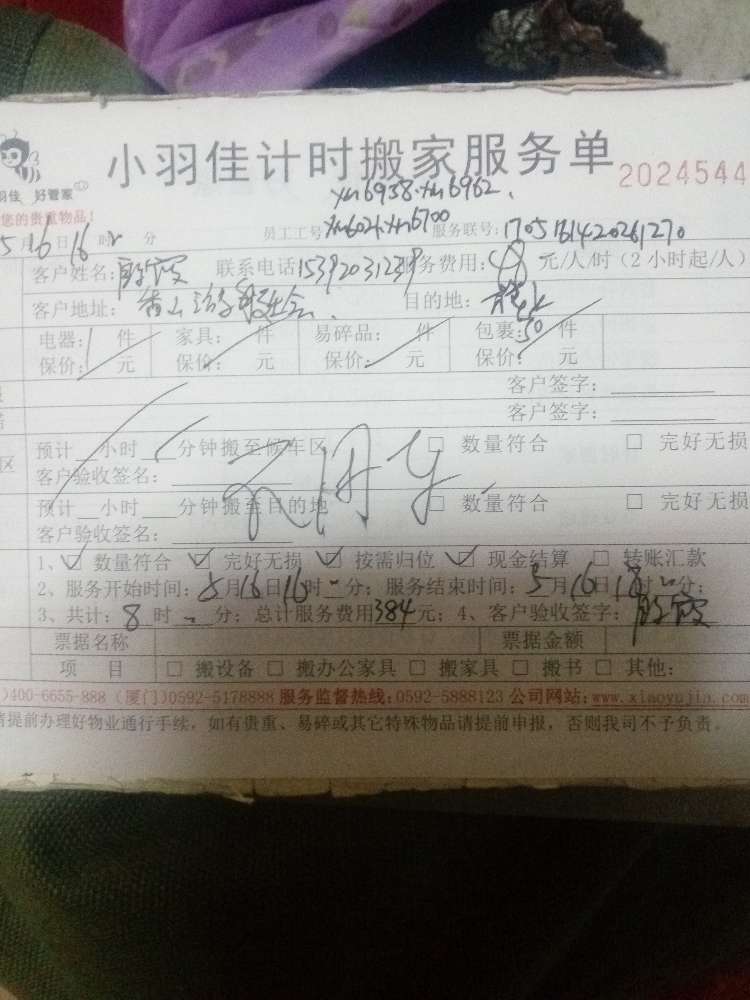 小羽佳计时搬家服务单 2024544
羽佳 好管家
xm6938.xm6962.
您的贵重物品!
5月16日16时 分 员工工号 xm6021.xm6700 服务联号:1705161420261270
客户姓名: 联系电话15392031239 务费用:48元/人/时(2小时起/人)
客户地址: 目的地:
电器:1件 家具: 件 易碎品: 件 包裹:50件
保价: 元 保价: 元 保价: 元 保价: 元
客户签字:
客户签字:
区 预计 小时 分钟搬至候车区 □ 数量符合 □ 完好无损
客户验收签名:
预计 小时 分钟搬至目的地 □ 数量符合 □ 完好无损
客户验收签名:
不用车
1、☑ 数量符合 ☑ 完好无损 ☑ 按需归位 ☑ 现金结算 □ 转账汇款
2、服务开始时间:5月16日16时 分;服务结束时间:5月16日18时 分;
3、共计:8时 分;总计服务费用384元;4、客户验收签字:
票据名称 票据金额
项 目 □ 搬设备 □ 搬办公家具 □ 搬家具 □ 搬书 □ 其他:
)400-6655-888 (厦门)0592-5178888 服务监督热线:0592-5888123 公司网站:www.xiaoyujia.com
请提前办理好物业通行手续,如有贵重、易碎或其它特殊物品请提前申报,否则我司不予负责。